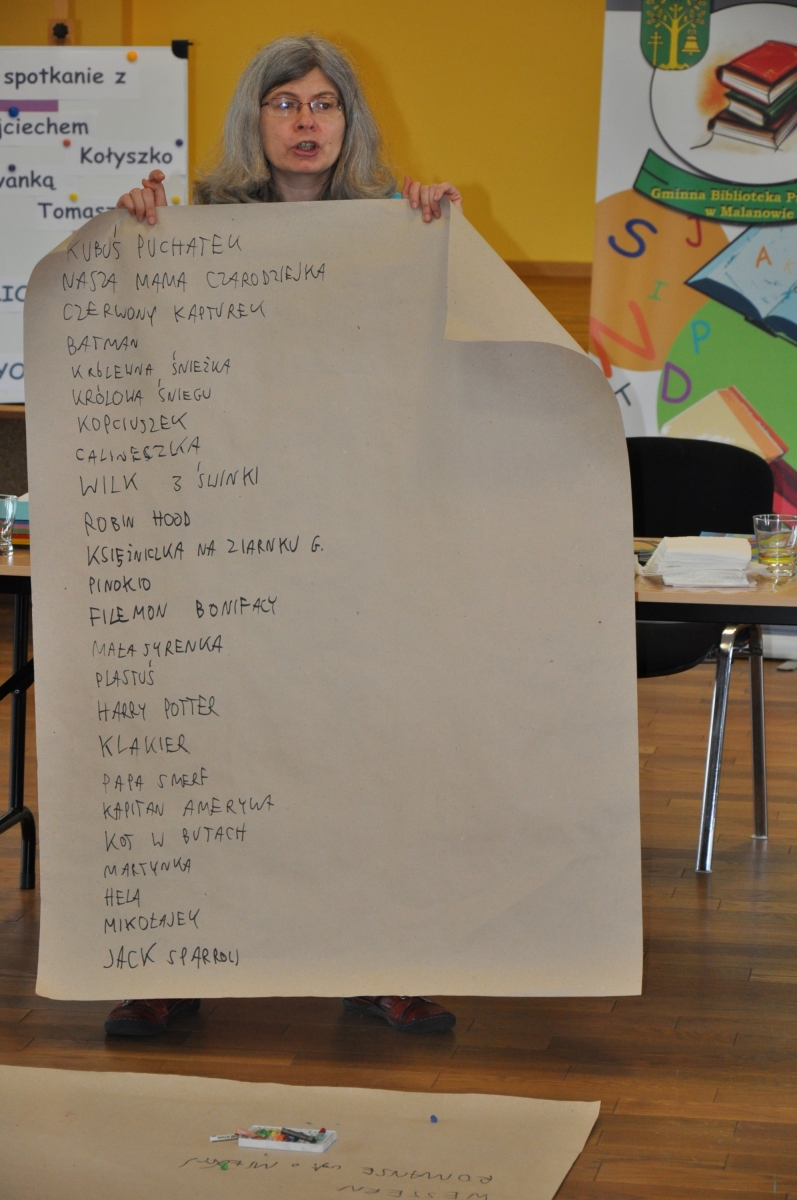 spotkanie z
jciechem
Kołyszko
wanką
Tomasz
KUBUŚ PUCHATEK
NASZA MAMA CZARODZIEJKA
CZERWONY KAPTUREK
BATMAN
KRÓLEWNA ŚNIEŻKA
KRÓLOWA ŚNIEGU
KOPCIUSZEK
CALINECZKA
WILK 3 ŚWINKI
ROBIN HOOD
KSIĘŻNICZKA NA ZIARNKU G.
PINOKIO
FILEMON BONIFACY
MAŁA SYRENKA
PLASTUŚ
HARRY POTTER
KLAKIER
PAPA SMERF
KAPITAN AMERYKA
KOT W BUTACH
MARTYNKA
HELA
MIKOŁAJEK
JACK SPARROW
Gminna Biblioteka P
w Malanowie
S J
A K
I
N P
D
K
ROMANSE
WESTERN